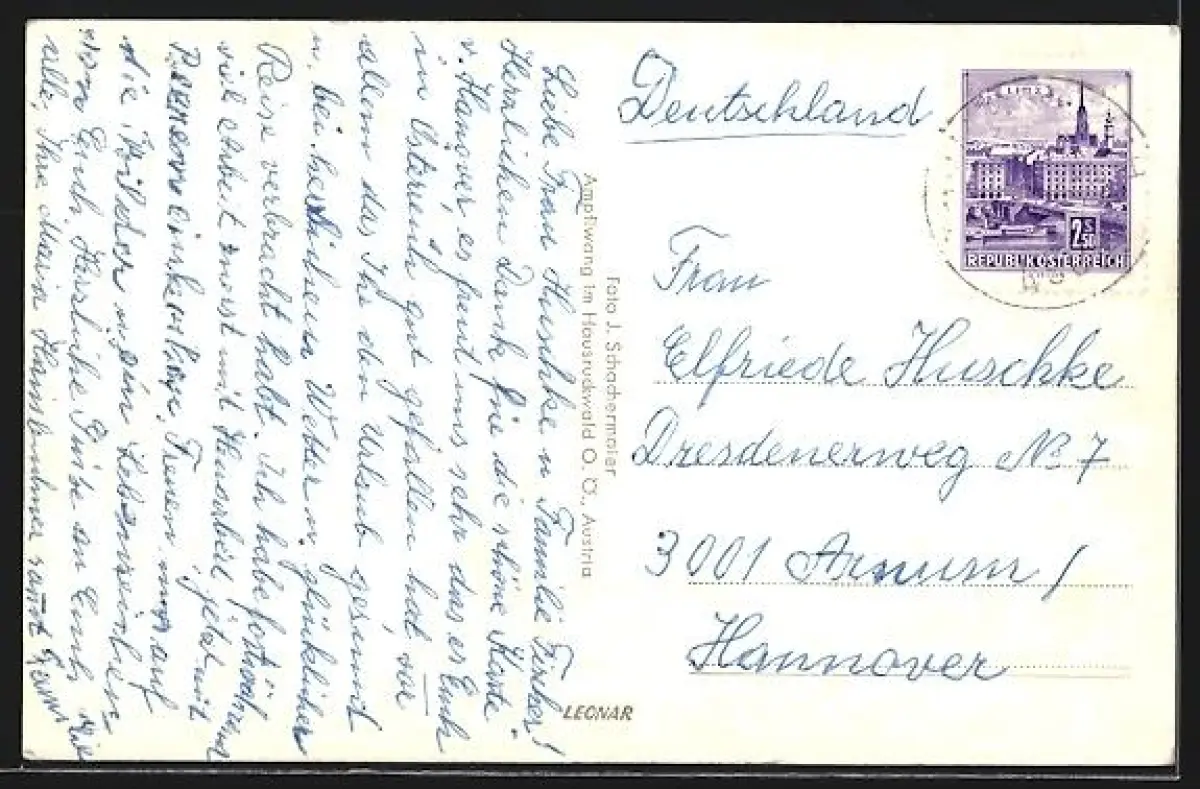 Liebe Frau Huschke u Familie Fischer!
Herzlichen Dank für die schöne Karte
v. Hannover, es freut uns sehr das es Euch
in Österreich gut gefallen hat vor
allem das Ihr den Urlaub gesund
u, bei Wetter u. glücklicher
Reise verbracht habt. Ich habe fort
viel Arbeit zuerst mit Heuarbeit, jetzt mit
einkochen, Freuen uns auf
die Bilder u. ein
von Euch Herzliche Grüße an Euch
alle, Ihre Maria samt Familie
Foto J. Schachermaier
Ampflwang im Hausruckwald O. Ö., Austria
LEONAR
Deutschland
LINZ
2 S 50
REPUBLIK ÖSTERREICH
Frau
Elfriede Huschke
Dresdenerweg No 7
3001 Arnum /
Hannover